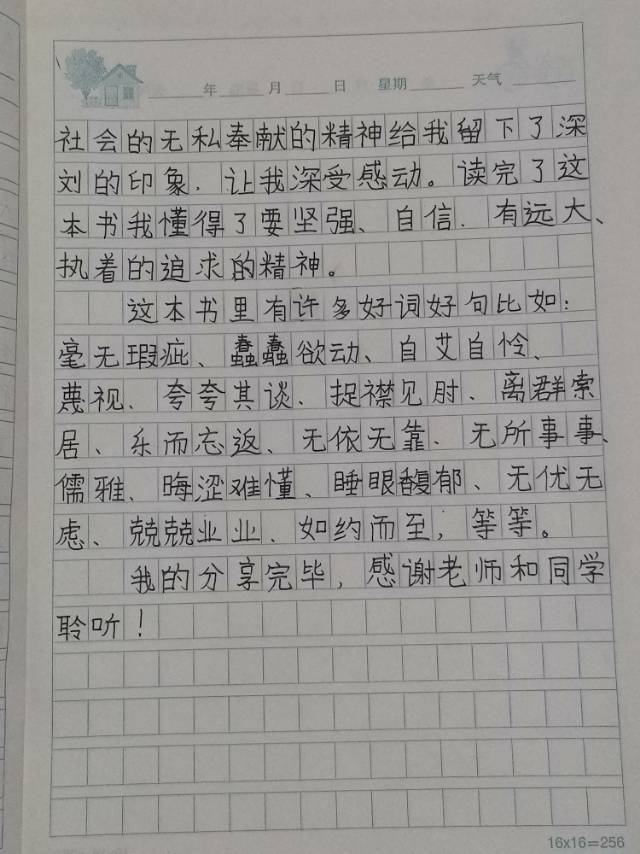 年 月 日 星期 天气
社会的无私奉献的精神给我留下了深
刘的印象，让我深受感动。读完了这
本书我懂得了要坚强、自信、有远大、
执着的追求的精神。
这本书里有许多好词好句比如：
毫无瑕疵、蠢蠢欲动、自艾自怜、
蔑视、夸夸其谈、捉襟见肘、离群索
居、乐而忘返、无依无靠、无所事事、
儒雅、晦涩难懂、睡眼馥郁、无忧无
虑、兢兢业业、如约而至，等等。
我的分享完毕，感谢老师和同学
聆听！
16x16=256